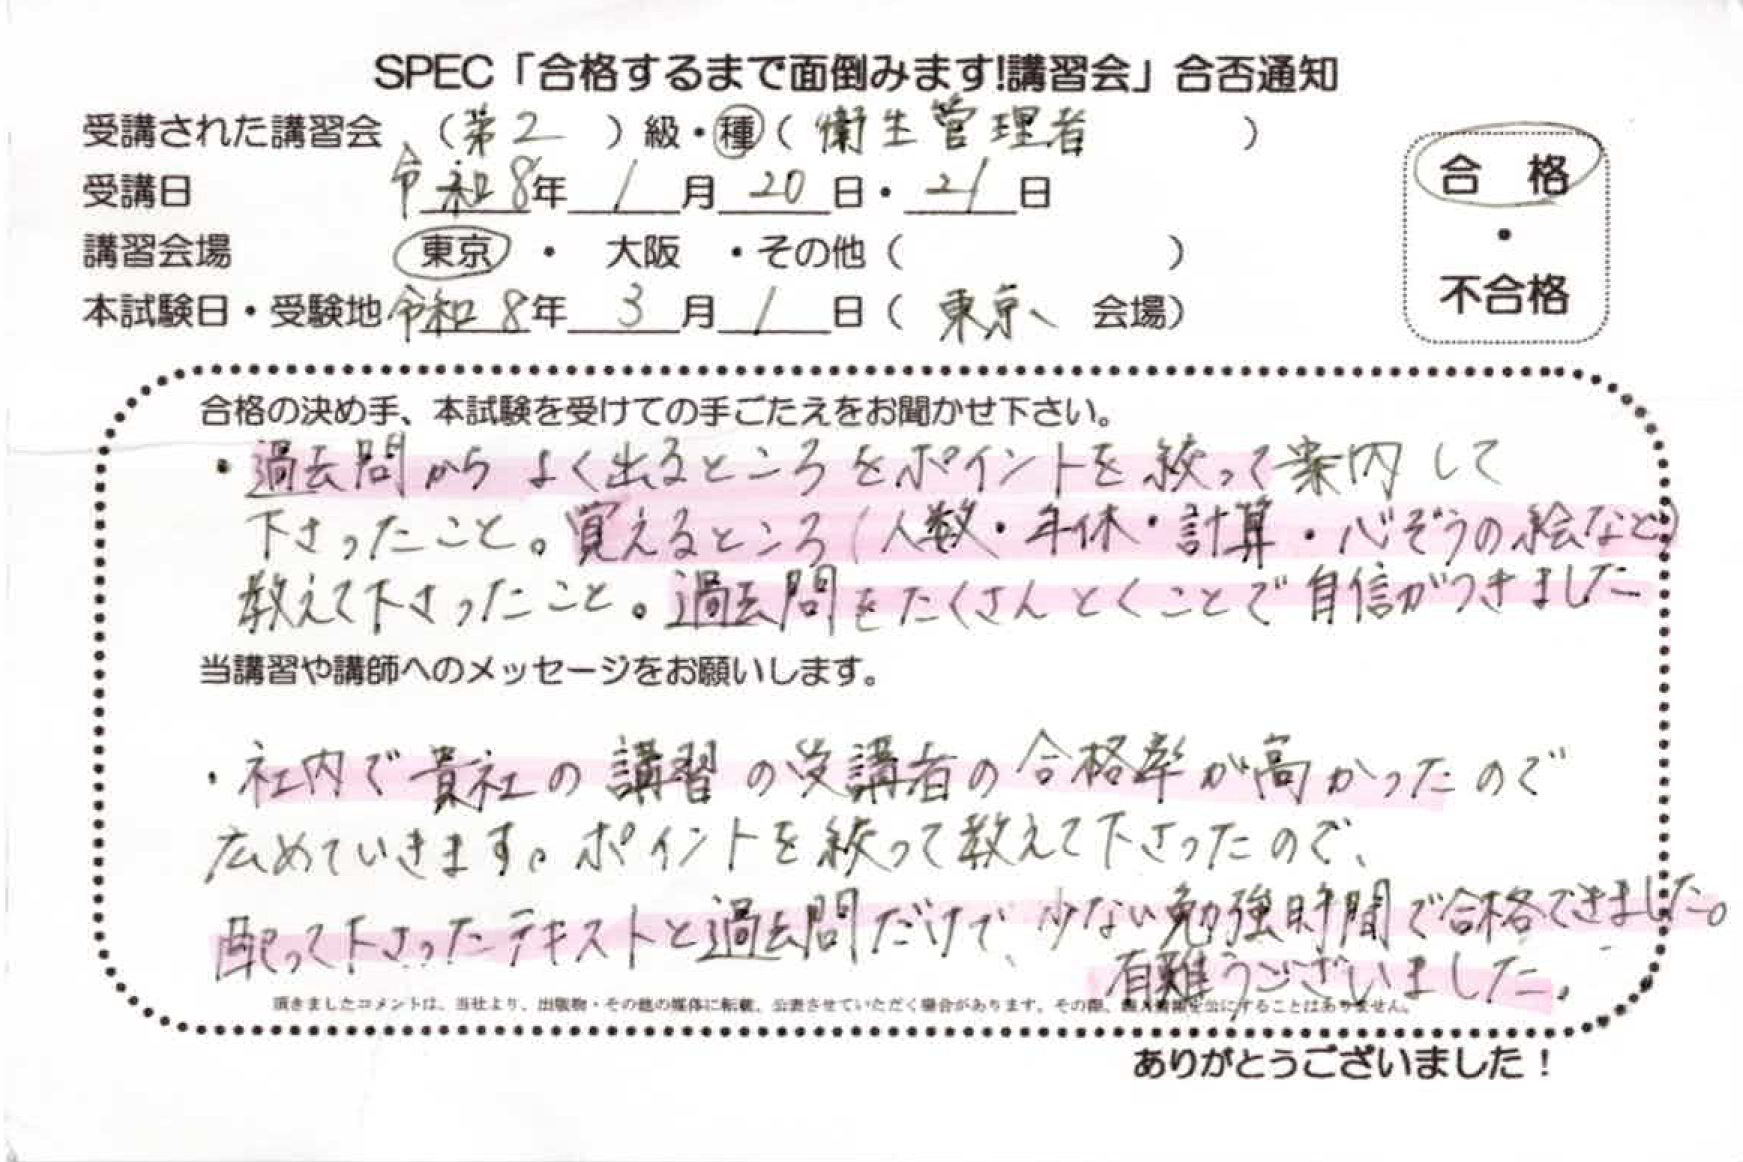 SPEC「合格するまで面倒みます!講習会」合否通知
受講された講習会 （第2）級・種（衛生管理者）
受講日 令和8年1月20日・21日
講習会場 東京・大阪・その他（ ）
本試験日・受験地 令和8年3月1日（東京、会場）
合 格
・
不合格
合格の決め手、本試験を受けての手ごたえをお聞かせ下さい。
・過去問からよく出るところをポイントを絞って案内して
下さったこと。覚えるところ（人数・年休・計算・心ぞうの絵など）
教えて下さったこと。過去問をたくさんとくことで自信がつきました
当講習や講師へのメッセージをお願いします。
・社内で貴社の講習の受講者の合格率が高かったので
広めていきます。ポイントを絞って教えて下さったので、
配って下さったテキストと過去問だけで、少ない勉強時間で合格できました。
有難うございました。
頂きましたコメントは、当社より、出版物・その他の媒体に転載、公表させていただく場合があります。その際、個人情報を公にすることはありません。
ありがとうございました！